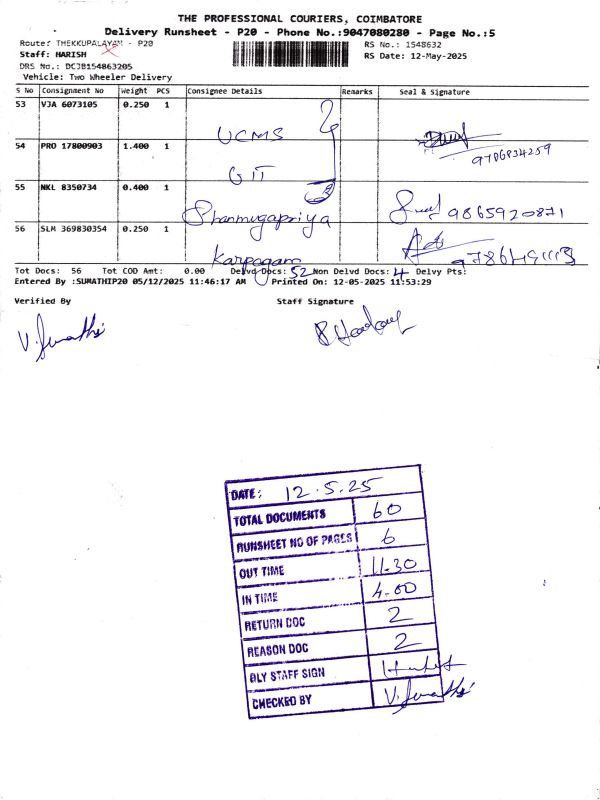 THE PROFESSIONAL COURIERS, COIMBATORE
Delivery Runsheet - P20 - Phone No.:9047080280 - Page No.:5
Route: THEKKUPALAYAM - P20 RS No.: 1548632
Staff: HARISH RS Date: 12-May-2025
DRS No.: DCJB154863205
Vehicle: Two Wheeler Delivery
S No Consignment No Weight PCS Consignee Details Remarks Seal & Signature
53 VJA 6073105 0.250 1
UCMS
54 PRO 17800903 1.400 1 9706834259
GIT
55 NKL 8350734 0.400 1
Shanmugapriya 9865920871
56 SLM 369830354 0.250 1
Karpagam
Tot Docs: 56 Tot COD Amt: 0.00 Delvd Docs: 52 Non Delvd Docs: 4 Delvy Pts:
Entered By :SUMATHIP20 05/12/2025 11:46:17 AM Printed On: 12-05-2025 11:53:29
Verified By Staff Signature
V. Sumathi
DATE: 12.5.25
TOTAL DOCUMENTS 60
RUNSHEET NO OF PAGES 6
OUT TIME 11.30
IN TIME 4.00
RETURN DOC 2
REASON DOC 2
DLY STAFF SIGN
CHECKED BY V. Sumathi